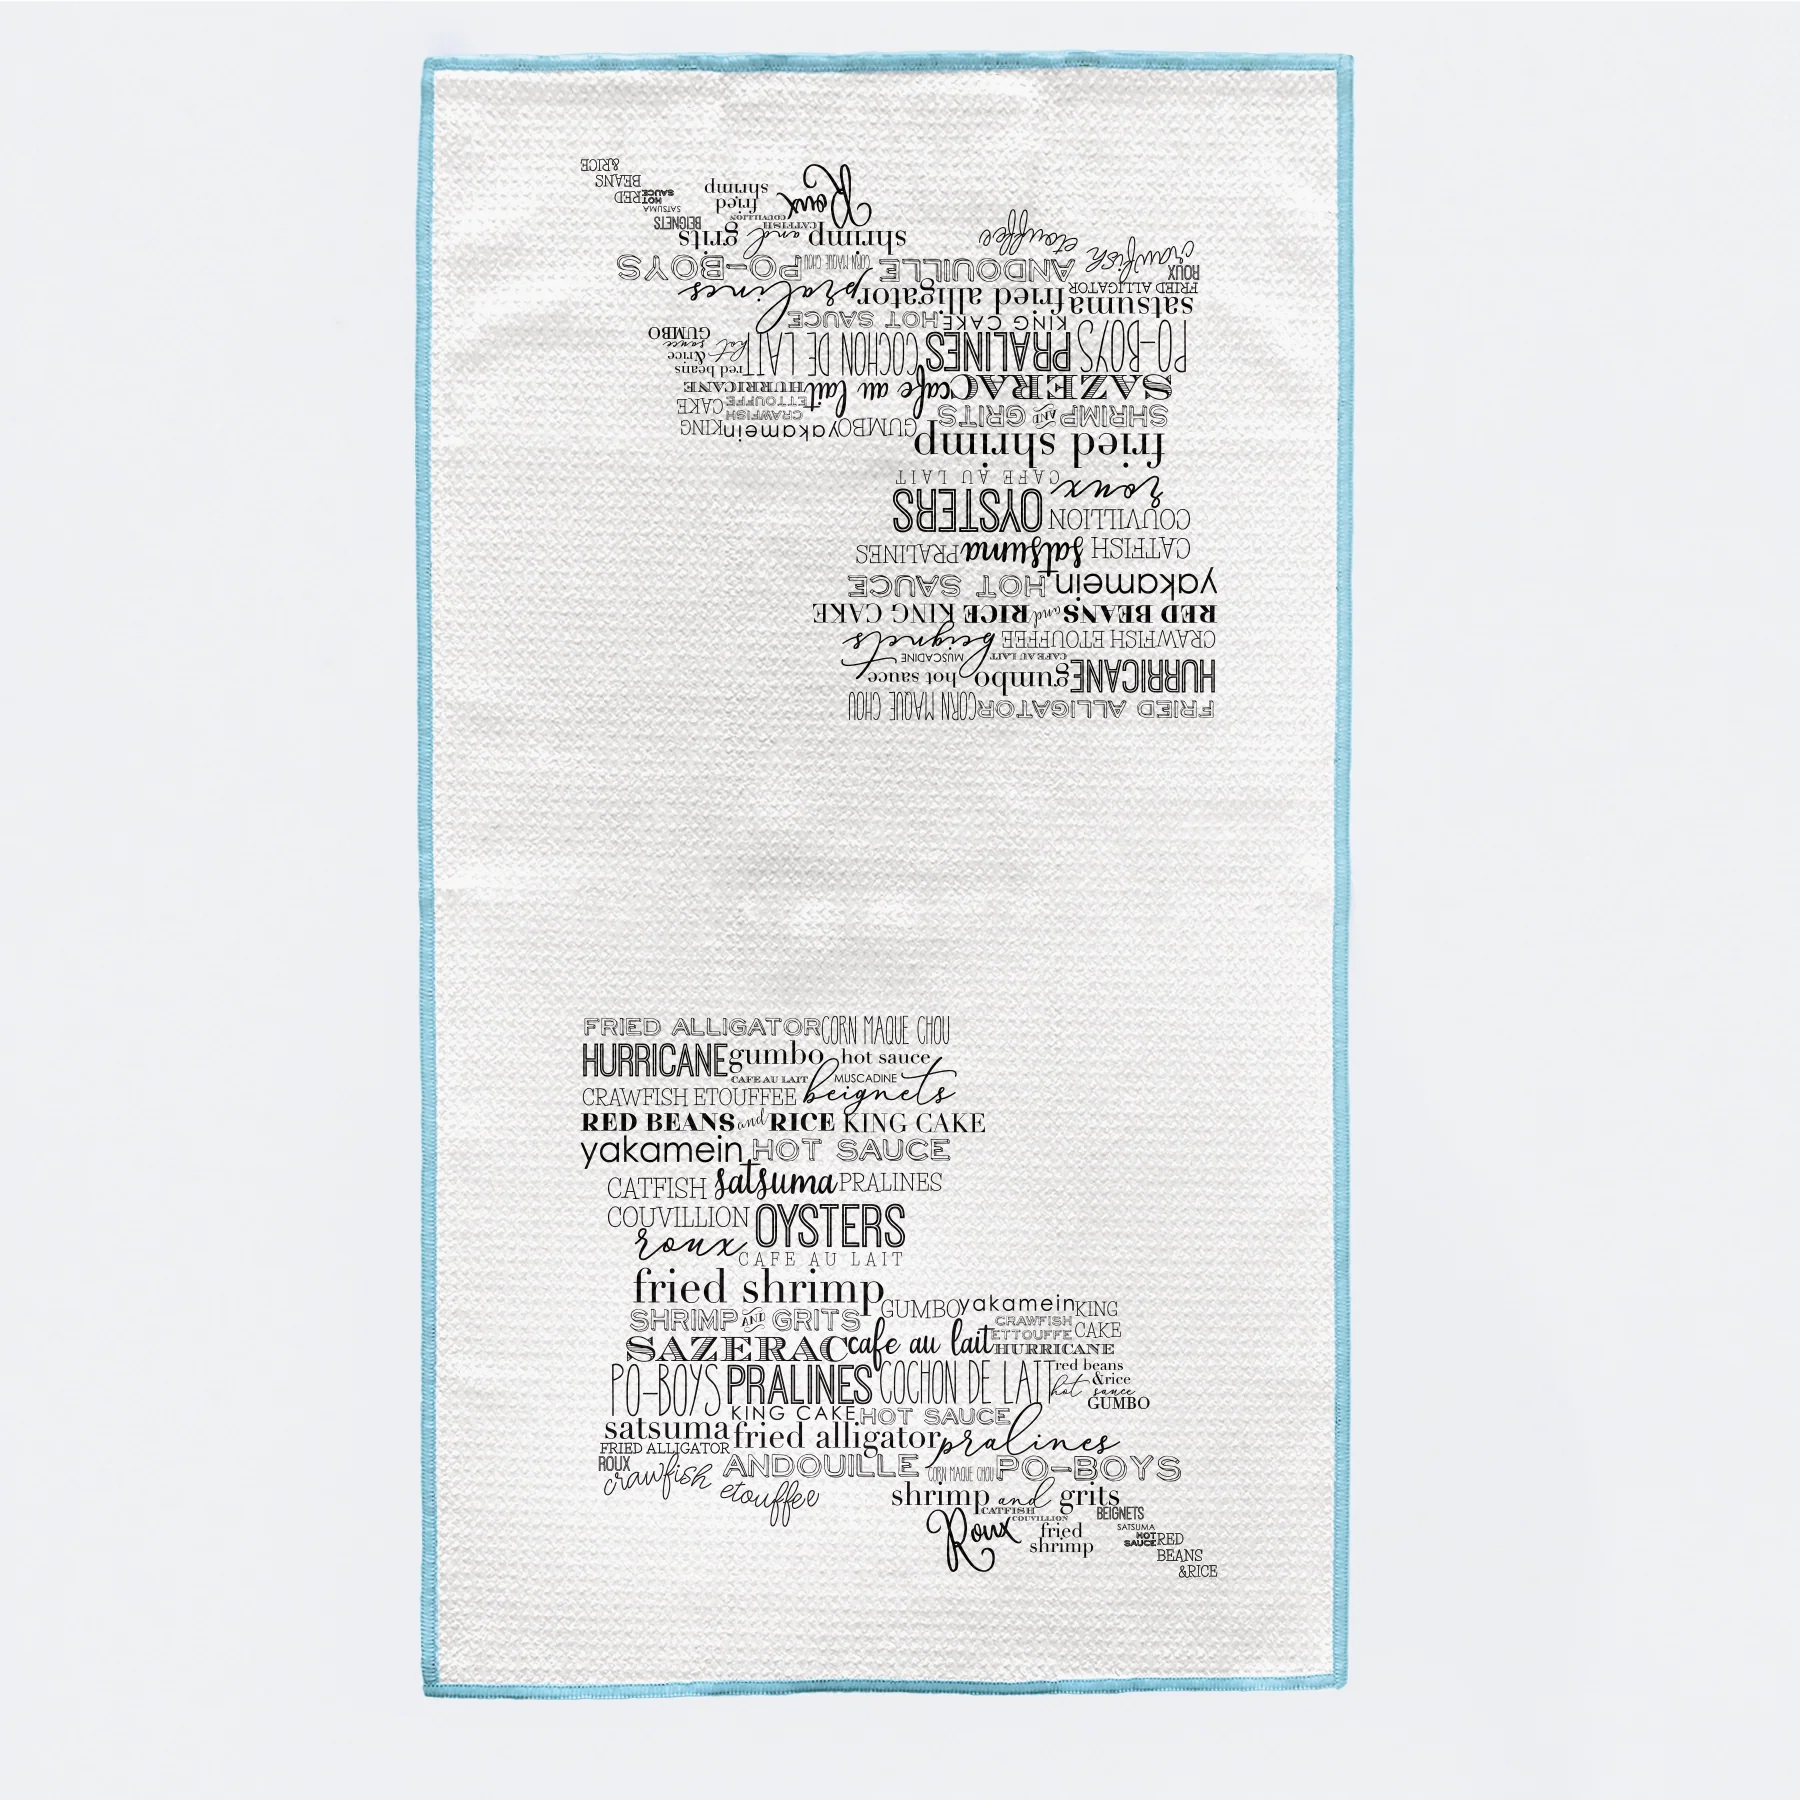 FRIED ALLIGATOR CORN MAQUE CHOU
HURRICANE gumbo hot sauce
CAFE AU LAIT MUSCADINE
CRAWFISH ETOUFFEE beignets
RED BEANS and RICE KING CAKE
yakamein HOT SAUCE
CATFISH satsuma PRALINES
COUVILLION OYSTERS
roux CAFE AU LAIT
fried shrimp
GUMBO yakamein KING
SHRIMP AND GRITS CRAWFISH
ETTOUFFE CAKE
SAZERAC cafe au lait HURRICANE
PO-BOYS PRALINES COCHON DE LAIT red beans
&rice
hot sauce
GUMBO
KING CAKE HOT SAUCE
satsuma fried alligator pralines
FRIED ALLIGATOR
ROUX ANDOUILLE CORN MAQUE CHOU PO-BOYS
crawfish etouffee
shrimp and grits
CATFISH BEIGNETS
COUVILLION
Roux fried SATSUMA
shrimp HOT RED
SAUCE
BEANS
&RICE
FRIED ALLIGATOR CORN MAQUE CHOU
HURRICANE gumbo hot sauce
CAFE AU LAIT MUSCADINE
CRAWFISH ETOUFFEE beignets
RED BEANS and RICE KING CAKE
yakamein HOT SAUCE
CATFISH satsuma PRALINES
COUVILLION OYSTERS
roux CAFE AU LAIT
fried shrimp
GUMBO yakamein KING
SHRIMP AND GRITS CRAWFISH
ETTOUFFE CAKE
SAZERAC cafe au lait HURRICANE
PO-BOYS PRALINES COCHON DE LAIT red beans
&rice
hot sauce
GUMBO
KING CAKE HOT SAUCE
satsuma fried alligator pralines
FRIED ALLIGATOR
ROUX ANDOUILLE CORN MAQUE CHOU PO-BOYS
crawfish etouffee
shrimp and grits
CATFISH BEIGNETS
COUVILLION
Roux fried SATSUMA
shrimp HOT RED
SAUCE
BEANS
&RICE